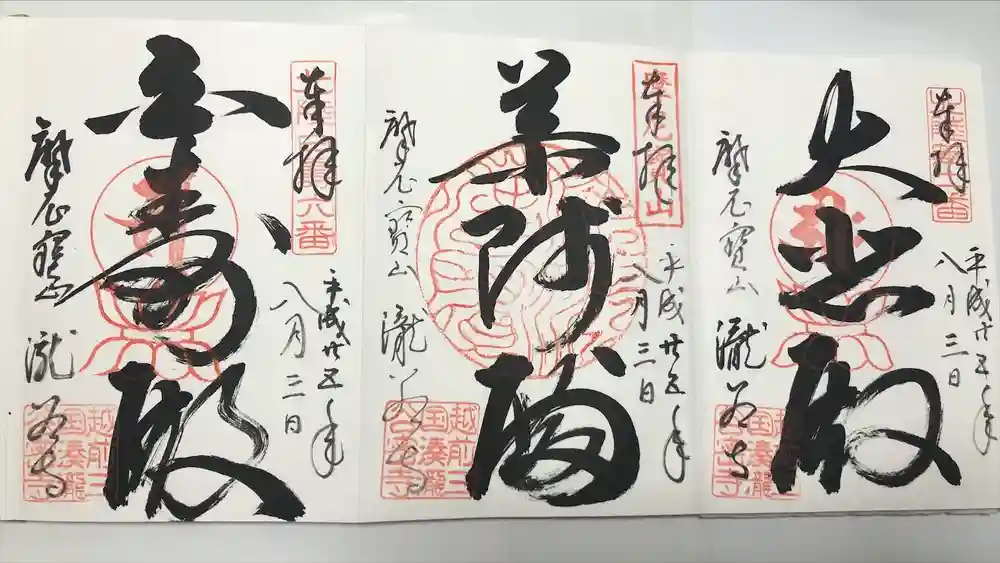 奉拝
平成廿五年
八月三日
大悲殿
摩尼寳山
瀧谷寺
越前三
国湊瀧
谷寺
奉拝
平成廿五年
八月三日
摩尼寳山
瀧谷寺
越前三
国湊瀧
谷寺
奉拝
六番
平成廿五年
八月三日
壽殿
摩尼寳山
瀧谷寺
越前三
国湊瀧
谷寺